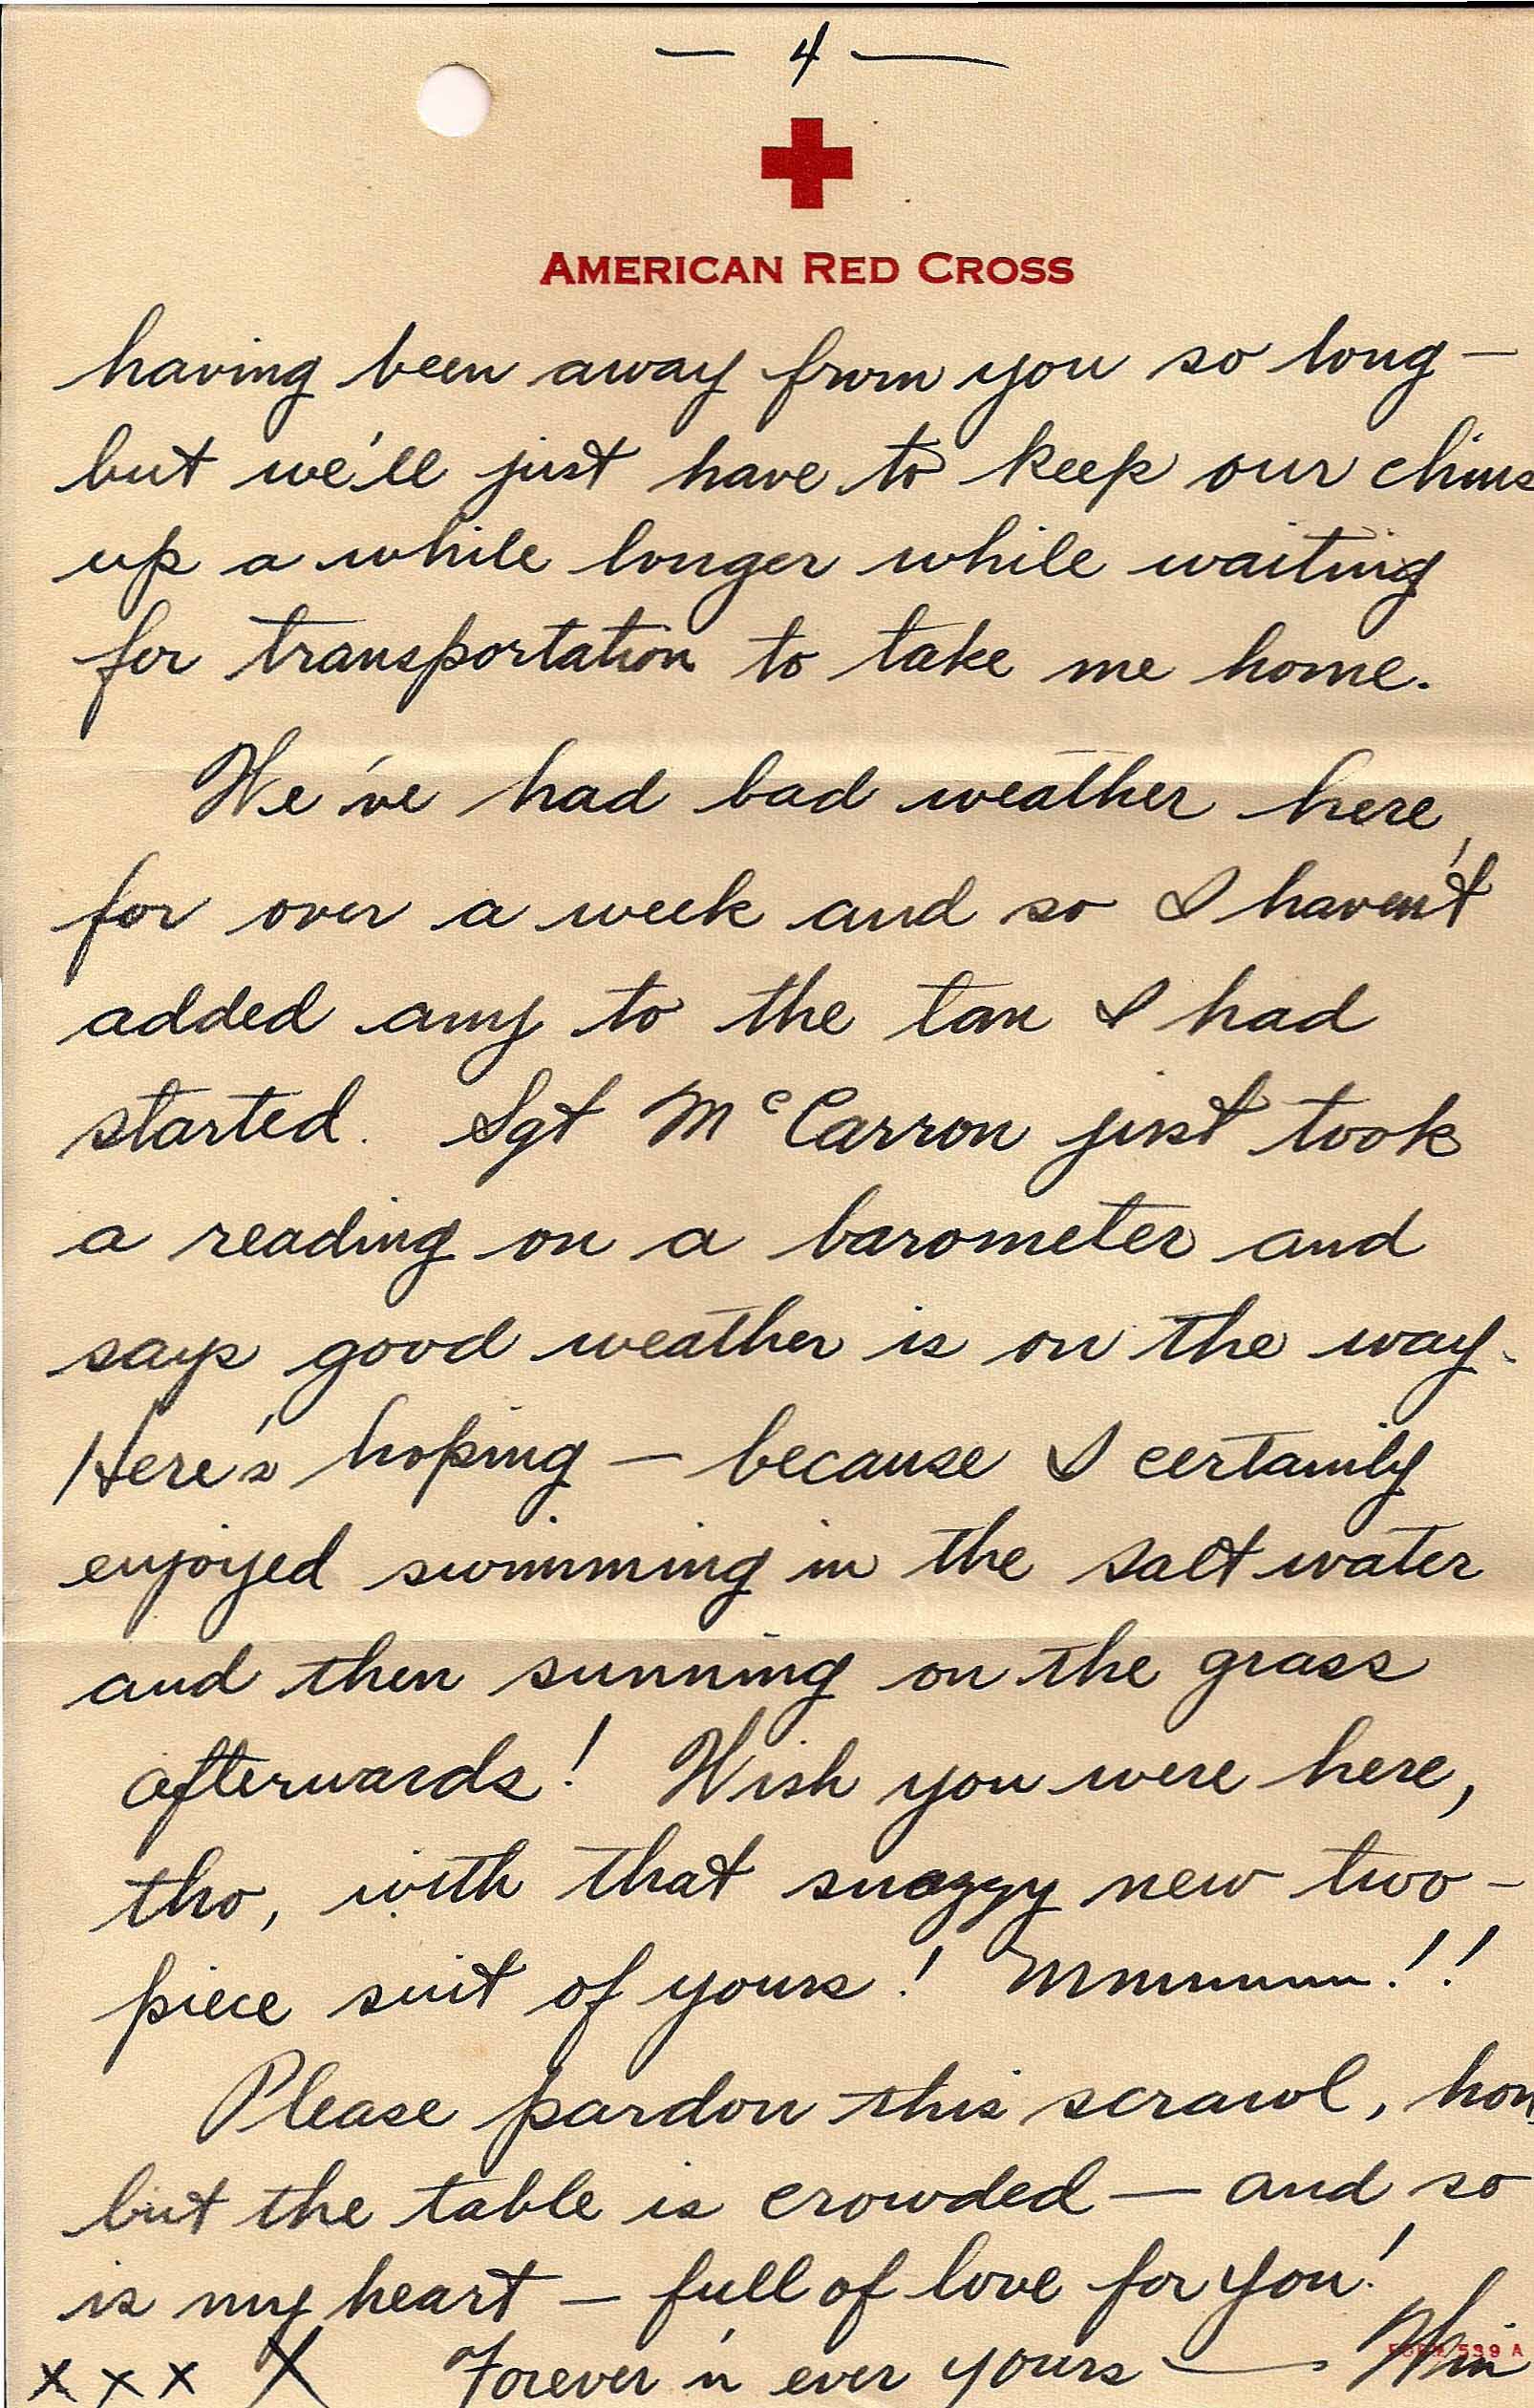 — 4 —
AMERICAN RED CROSS
having been away from you so long —
but we'll just have to keep our chins
up a while longer while waiting
for transportation to take me home.
We've had bad weather here,
for over a week and so I haven't
added any to the tan I had
started. Sgt McCarron just took
a reading on a barometer and
says good weather is on the way.
Here's hoping — because I certainly
enjoyed swimming in the salt water
and then sunning on the grass
afterwards! Wish you were here,
tho, with that snazzy new two-
piece suit of yours! Mmmmmm!!
Please pardon this scrawl, hon,
but the table is crowded — and so
is my heart — full of love for you!
x x x X Forever 'n ever yours — Win
FORM 539 A